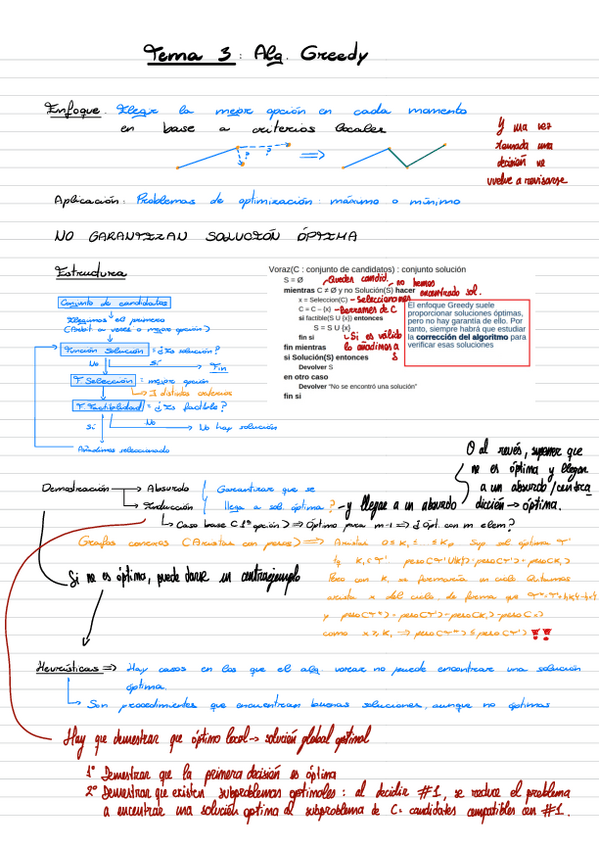 Tema 3: Alg. Greedy
Enfoque. Elegir la mejor opción en cada momento
en base a criterios locales
Y una vez
tomada una
decisión no
vuelve a revisarse
Aplicación: Problemas de optimización: máximo o mínimo
NO GARANTIZAN SOLUCIÓN ÓPTIMA
Estructura
Conjunto de candidatos
Elegimos el primero
(Azar a veces o mejor opción)
Función Solución = ¿Es solución?
No Sí Fin
F Selección = mejor opción
F Factibilidad = ¿Es factible?
Sí No No hay solución
Añadimos seleccionado
Voraz(C : conjunto de candidatos) : conjunto solución
S = Ø
Quedan candid. no hemos
mientras C ≠ Ø y no Solución(S) hacer
encontrado sol.
x = Seleccion(C) - seleccionamos
C = C – {x} - Borramos de C
si factible(S U {x}) entonces
S = S U {x}
fin si - Si es válido
fin mientras lo añadimos a
si Solución(S) entonces S
Devolver S
en otro caso
Devolver "No se encontró una solución"
fin si
El enfoque Greedy suele
proporcionar soluciones óptimas,
pero no hay garantía de ello. Por
tanto, siempre habrá que estudiar
la corrección del algoritmo para
verificar esas soluciones
O al revés, suponer que
no es óptima y llegar
a un absurdo/contra
dicción → óptima.
Demostración → Absurdo
Inducción
Garantizar que se
llega a sol. óptima? - y llegar a un absurdo
Caso base (1ª opción) ⇒ Óptimo para m-1 ⇒ ¿Ópt. con m elem?
Grafos conexos (Aristas con pesos) ⇒
Si no es óptima, puede darse un contraejemplo
Heurísticas ⇒ Hay casos en los que el alg. voraz no puede encontrar una solución
óptima.
Son procedimientos que encuentran buenas soluciones, aunque no óptimas
Hay que demostrar que óptimo local → solución global optimal
1º Demostrar que la primera decisión es óptima
2º Demostrar que existen subproblemas optimales: al decidir #1, se reduce el problema
a encontrar una solución optima al subproblema de C = candidatos compatibles con #1.